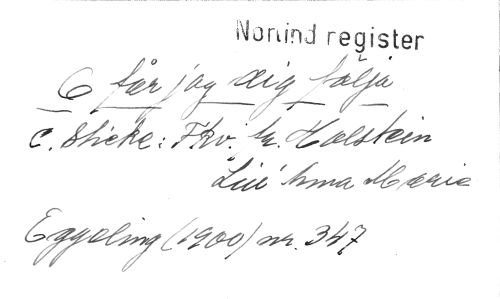 Norlind register
O får jag dig följa
C. Stiehe: Fkv. fr. Holstein
Anna Maria
Eggeling (1900) nr. 347